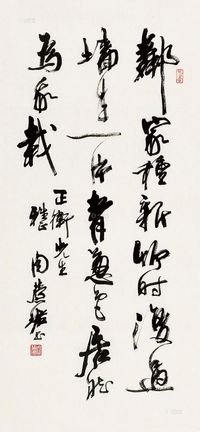 鄰家種新竹时復過
墙来一片青葱色居然
為我栽
正衡先生
雅正 周慧珺书